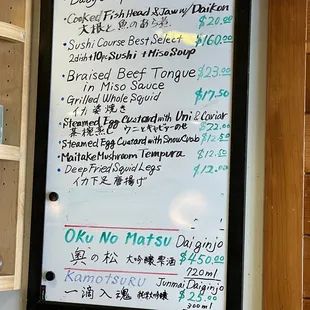 Cooked Fish Head & Jaw w/ Daikon $20.00
大根と魚のあら煮
• Sushi Course Best Select $160.00
2dish + 10pc Sushi + Miso Soup
• Braised Beef Tongue $23.00
in Miso Sauce
• Grilled Whole Squid $17.50
イカ姿焼き
• Steamed Egg Custard with Uni & Caviar $22.00
茶碗蒸し
• Steamed Egg Custard with Snow Crab $12.50
• Maitake Mushroom Tempura $12.50
• Deep Fried Squid Legs $12.00
イカ下足唐揚げ
Oku No Matsu Daiginjo
奥の松 大吟醸 $450.00
720ml
Kamotsuru Junmai Daiginjo
一滴入魂 純米吟醸 $25.00
300ml